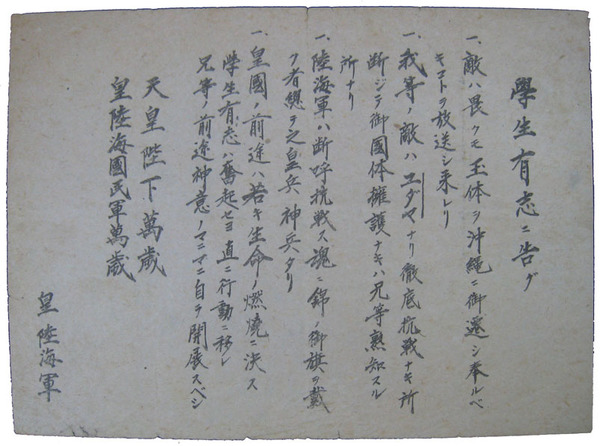 學生有志ニ告グ
一、敵ハ畏クモ玉体ヲ沖縄ニ御遷シ奉ルベ
キコトヲ放送シ来レリ
一、我等ノ敵ハユダマナリ徹底抗戦ナキ所
断ジテ御國体擁護ナキハ兄等熟知スル
所ナリ
一、陸海軍ハ断乎抗戦ス魂ニ錦ノ御旗ヲ戴
ク者總ヲ之皇兵、神兵タリ
一、皇國ノ前途ハ若キ生命ノ燃焼ニ決ス
學生有志ハ奮起セヨ直ニ行動ニ移レ
兄等ノ前途神意ノマニマニ自ラ開展スベシ
天皇陛下萬歳
皇陸海國民軍萬歳
皇陸海軍